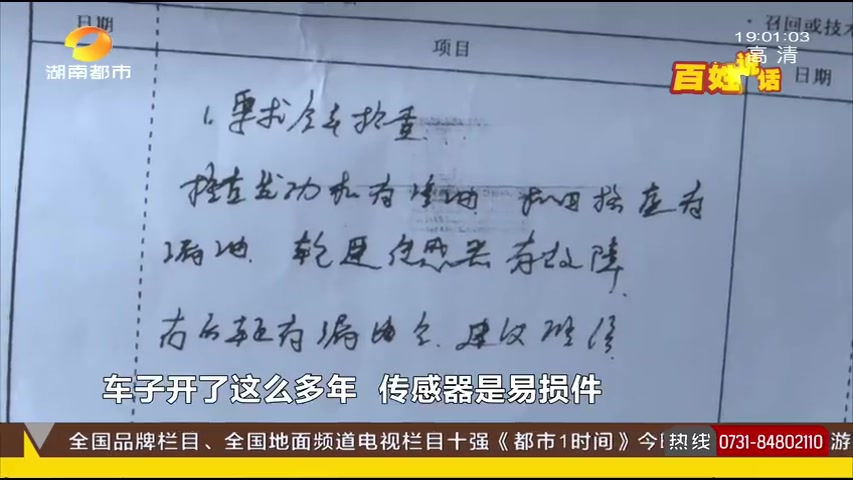 日期
项目
召回或技术
日期
湖南都市
19:01:03
高清
百姓说话
1、要求全车检查
检查发动机有渗油
有
漏油 传感器有故障
右后 有漏油 建议维修
车子开了这么多年 传感器是易损件
全国品牌栏目、全国地面频道电视栏目十强《都市1时间》今
热线
0731-84802110
游